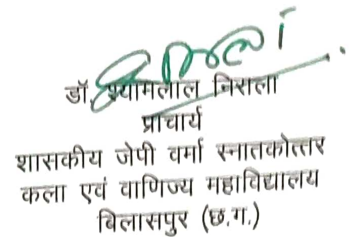 डॉ. श्यामलाल निराला
प्राचार्य
शासकीय जेपी वर्मा स्नातकोत्तर
कला एवं वाणिज्य महाविद्यालय
बिलासपुर (छ.ग.)